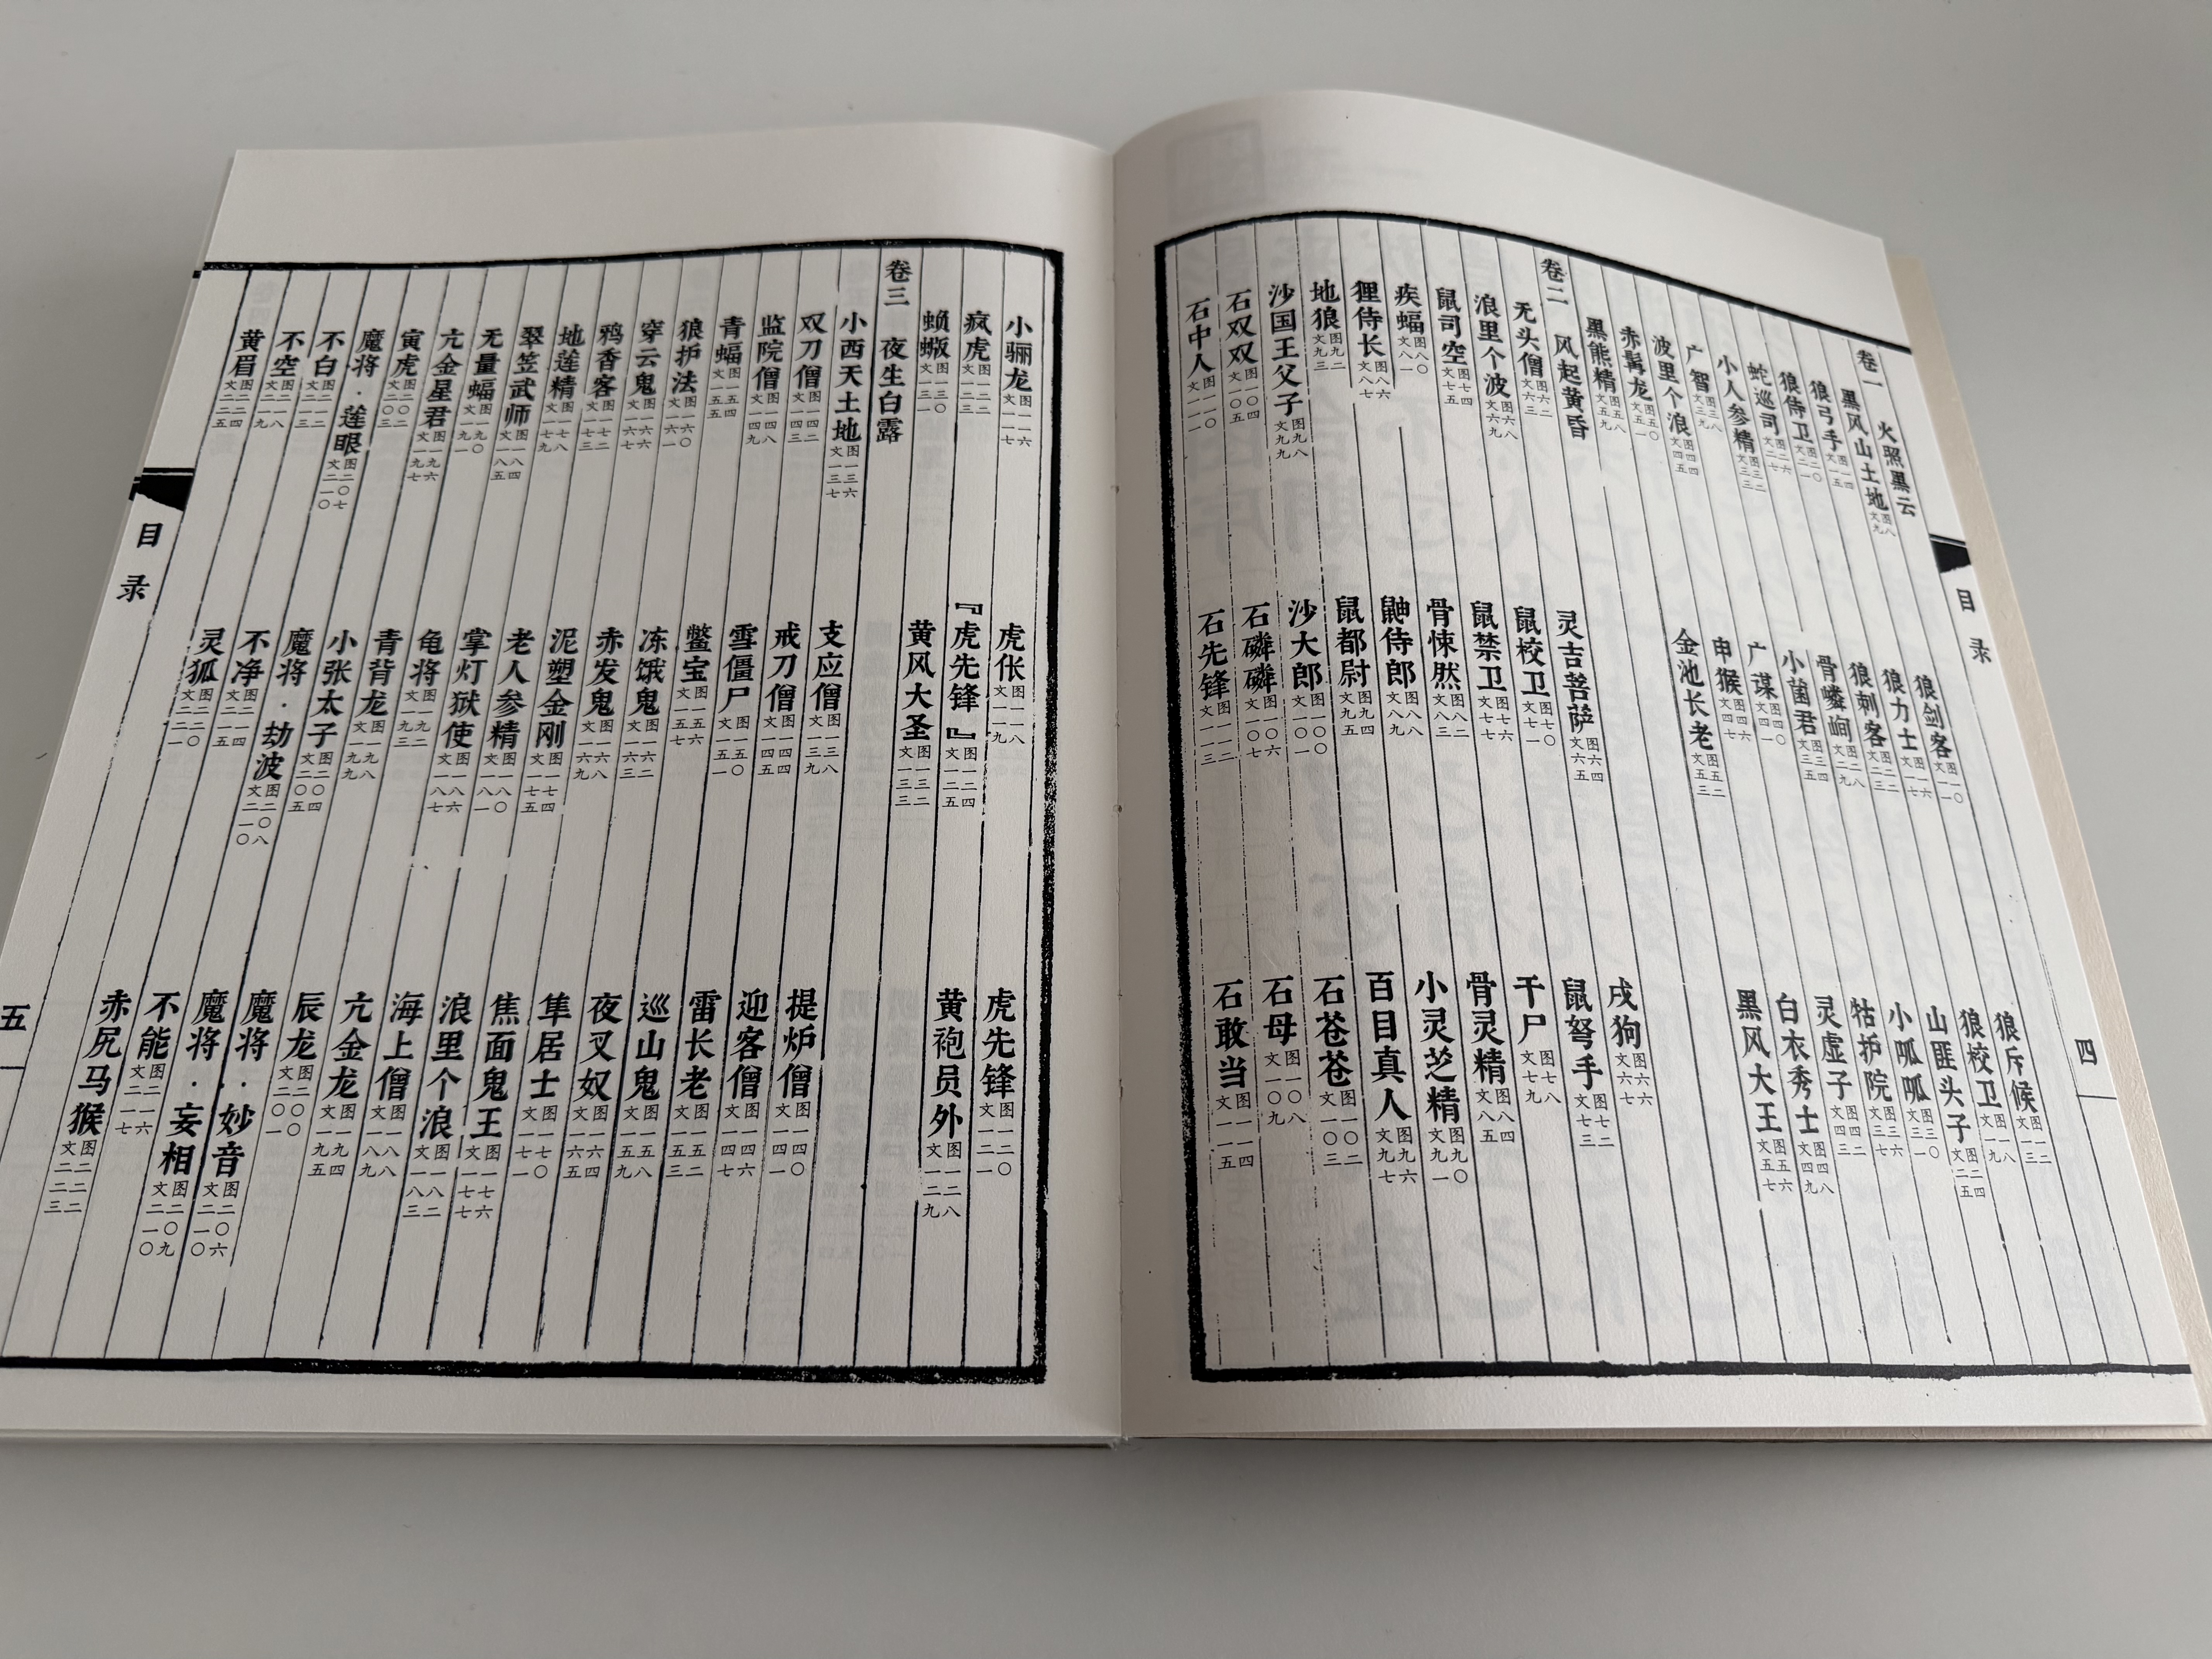 卷一 火照黑云
黑风山土地 图八 文九 狼剑客 图一〇 文一一 狼斥候 图一二 文一三
狼弓手 图一四 文一五 狼力士 图一六 文一七 狼校卫 图一八 文一九
狼侍卫 图二〇 文二一 狼刺客 图二二 文二三 山匪头子 图二四 文二五
蛇巡司 图二六 文二七 骨嶙峋 图二八 文二九 小呱呱 图三〇 文三一
小人参精 图三二 文三三 小菌君 图三四 文三五 牯护院 图三六 文三七
广智 图三八 文三九 广谋 图四〇 文四一 灵虚子 图四二 文四三
波里个浪 图四四 文四五 申猴 图四六 文四七 白衣秀士 图四八 文四九
赤髯龙 图五〇 文五一 金池长老 图五二 文五三 黑风大王 图五六 文五七
黑熊精 图五八 文五九
卷二 风起黄昏
无头僧 图六二 文六三 灵吉菩萨 图六四 文六五 戌狗 图六六 文六七
浪里个波 图六八 文六九 鼠校卫 图七〇 文七一 鼠弩手 图七二 文七三
鼠司空 图七四 文七五 鼠禁卫 图七六 文七七 干尸 图七八 文七九
疾蝠 图八〇 文八一 骨悚然 图八二 文八三 骨灵精 图八四 文八五
狸侍长 图八六 文八七 鼬侍郎 图八八 文八九 小灵芝精 图九〇 文九一
地狼 图九二 文九三 鼠都尉 图九四 文九五 百目真人 图九六 文九七
沙国王父子 图九八 文九九 沙大郎 图一〇〇 文一〇一 石苍苍 图一〇二 文一〇三
石双双 图一〇四 文一〇五 石磷磷 图一〇六 文一〇七 石母 图一〇八 文一〇九
石中人 图一一〇 文一一一 石先锋 图一一二 文一一三 石敢当 图一一四 文一一五
目录
四
小骊龙 图一一六 文一一七 虎伥 图一一八 文一一九 虎先锋 图一二〇 文一二一
疯虎 图一二二 文一二三 『虎先锋』 图一二四 文一二五 黄袍员外 图一二八 文一二九
蝜蝂 图一三〇 文一三一 黄风大圣 图一三二 文一三三
卷三 夜生白露
小西天土地 图一三六 文一三七 支应僧 图一三八 文一三九 提炉僧 图一四〇 文一四一
双刀僧 图一四二 文一四三 戒刀僧 图一四四 文一四五 迎客僧 图一四六 文一四七
监院僧 图一四八 文一四九 雪僵尸 图一五〇 文一五一 雷长老 图一五二 文一五三
青蝠 图一五四 文一五五 鳖宝 图一五六 文一五七 巡山鬼 图一五八 文一五九
狼护法 图一六〇 文一六一 冻饿鬼 图一六二 文一六三 夜叉奴 图一六四 文一六五
穿云鬼 图一六六 文一六七 赤发鬼 图一六八 文一六九 隼居士 图一七〇 文一七一
鸦香客 图一七二 文一七三 泥塑金刚 图一七四 文一七五 焦面鬼王 图一七六 文一七七
地莲精 图一七八 文一七九 老人参精 图一八〇 文一八一 浪里个浪 图一八二 文一八三
翠笠武师 图一八四 文一八五 掌灯狱使 图一八六 文一八七 海上僧 图一八八 文一八九
无量蝠 图一九〇 文一九一 龟将 图一九二 文一九三 亢金龙 图一九四 文一九五
亢金星君 图一九六 文一九七 青背龙 图一九八 文一九九 辰龙 图二〇〇 文二〇一
寅虎 图二〇二 文二〇三 小张太子 图二〇四 文二〇五 魔将·妙音 图二〇六 文二一〇
魔将·莲眼 图二〇七 文二一〇 魔将·劫波 图二〇八 文二一〇 魔将·妄相 图二〇九 文二一〇
不白 图二一二 文二一三 不净 图二一四 文二一五 不能 图二一六 文二一七
不空 图二一八 文二一九 灵狐 图二二〇 文二二一 赤尻马猴 图二二二 文二二三
黄眉 图二二四 文二二五
目录
五